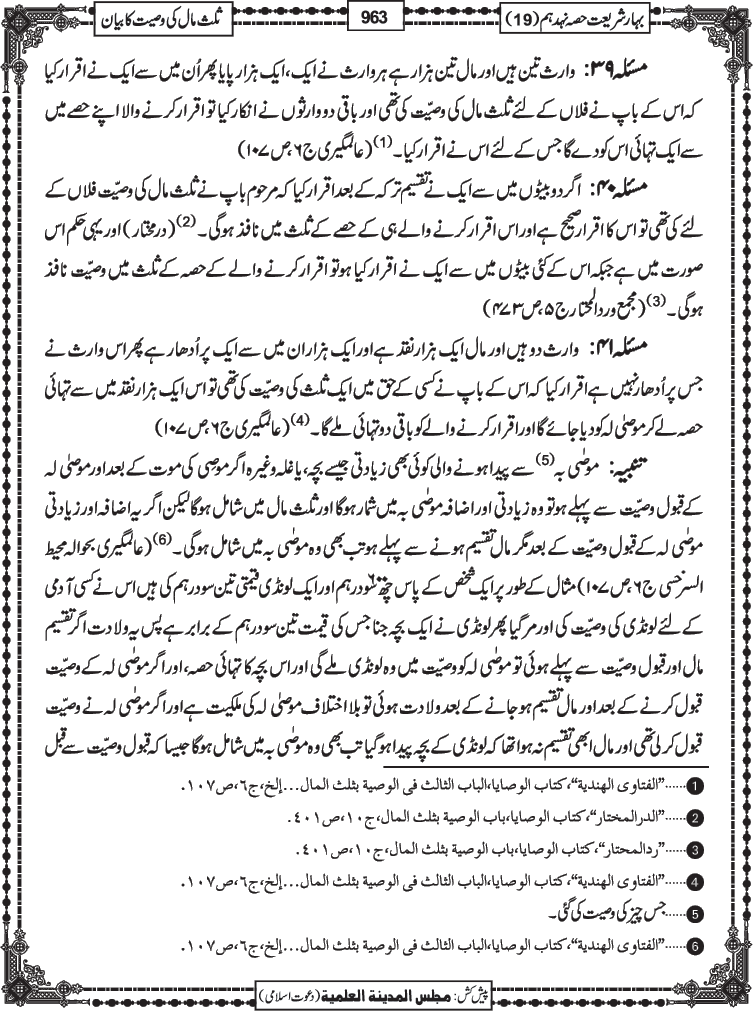 بہار شریعت حصہ نہدہم (19)
963
ثلث مال کی وصیت کا بیان
مسئلہ ۳۹: وارث تین ہیں اور مال تین ہزار ہے ہر وارث نے ایک، ایک ہزار پایا پھر اُن میں سے ایک نے اقرار کیا
کہ اس کے باپ نے فلاں کے لئے ثلث مال کی وصیّت کی تھی اور باقی دو وارثوں نے انکار کیا تو اقرار کرنے والا اپنے حصے میں
سے ایک تہائی اس کو دے گا جس کے لئے اس نے اقرار کیا۔(1) (عالمگیری ج۶، ص ۱۰۷)
مسئلہ ۴۰: اگر دو بیٹوں میں سے ایک نے تقسیم ترکہ کے بعد اقرار کیا کہ مرحوم باپ نے ثلث مال کی وصیّت فلاں کے
لئے کی تھی تو اس کا اقرار صحیح ہے اور اس اقرار کرنے والے ہی کے حصے کے ثلث میں نافذ ہوگی۔(2) (درمختار) اور یہی حکم اس
صورت میں ہے جبکہ اس کے کئی بیٹوں میں سے ایک نے اقرار کیا ہو تو اقرار کرنے والے کے حصہ کے ثلث میں وصیّت نافذ
ہوگی۔(3) (مجمع وردالمحتار ج ۵، ص ۴۷۳)
مسئلہ ۴۱: وارث دو ہیں اور مال ایک ہزار نقد ہے اور ایک ہزار ان میں سے ایک پر اُدھار ہے پھر اس وارث نے
جس پر اُدھار نہیں ہے اقرار کیا کہ اس کے باپ نے کسی کے حق میں ایک ثلث کی وصیّت کی تھی تو اس ایک ہزار نقد میں سے تہائی
حصہ لے کر موصٰی لہ کو دیا جائے گا اور اقرار کرنے والے کو باقی دو تہائی ملے گا۔(4) (عالمگیری ج۶، ص ۱۰۷)
تنبیہ: موصٰی بہ(5) سے پیدا ہونے والی کوئی بھی زیادتی جیسے بچہ، یا غلہ وغیرہ اگر موصی کی موت کے بعد اور موصٰی لہ
کے قبول وصیّت سے پہلے ہو تو وہ زیادتی اور اضافہ موصٰی بہ میں شمار ہوگا اور ثلث مال میں شامل ہوگا لیکن اگر یہ اضافہ اور زیادتی
موصٰی لہ کے قبول وصیّت کے بعد مگر مال تقسیم ہونے سے پہلے ہو تب بھی وہ موصٰی بہ میں شامل ہوگی۔(6) (عالمگیری بحوالہ محیط
السرخسی ج۶، ص ۱۰۷) مثال کے طور پر ایک شخص کے پاس چھ۶۰۰ سو درہم اور ایک لونڈی قیمتی تین سو درہم کی ہیں اس نے کسی آدمی
کے لئے لونڈی کی وصیّت کی اور مر گیا پھر لونڈی نے ایک بچہ جنا جس کی قیمت تین سو درہم کے برابر ہے پس یہ ولادت اگر تقسیم
مال اور قبول وصیّت سے پہلے ہوئی تو موصٰی لہ کو وصیّت میں وہ لونڈی ملے گی اور اس بچہ کا تہائی حصہ، اور اگر موصٰی لہ کے وصیّت
قبول کرنے کے بعد اور مال تقسیم ہو جانے کے بعد ولادت ہوئی تو بلا اختلاف موصٰی لہ کی ملکیت ہے اور اگر موصٰی لہ نے وصیّت
قبول کر لی تھی اور مال ابھی تقسیم نہ ہوا تھا کہ لونڈی کے بچہ پیدا ہو گیا تب بھی وہ موصٰی بہ میں شامل ہوگا جیسا کہ قبول وصیّت سے قبل
1......"الفتاوی الهندیة"، کتاب الوصایا، الباب الثالث فی الوصیة بثلث المال...إلخ، ج۶، ص۱۰۷.
2......"الدرالمختار"، کتاب الوصایا، باب الوصیة بثلث المال، ج۱۰، ص۴۰۱.
3......"ردالمحتار"، کتاب الوصایا، باب الوصیة بثلث المال، ج۱۰، ص۴۰۱.
4......"الفتاوی الهندیة"، کتاب الوصایا، الباب الثالث فی الوصیة بثلث المال...إلخ، ج۶، ص۱۰۷.
5......جس چیز کی وصیت کی گئی۔
6......"الفتاوی الهندیة"، کتاب الوصایا، الباب الثالث فی الوصیة بثلث المال...إلخ، ج۶، ص۱۰۷.
پیش کش: مجلس المدینة العلمیة (دعوت اسلامی)